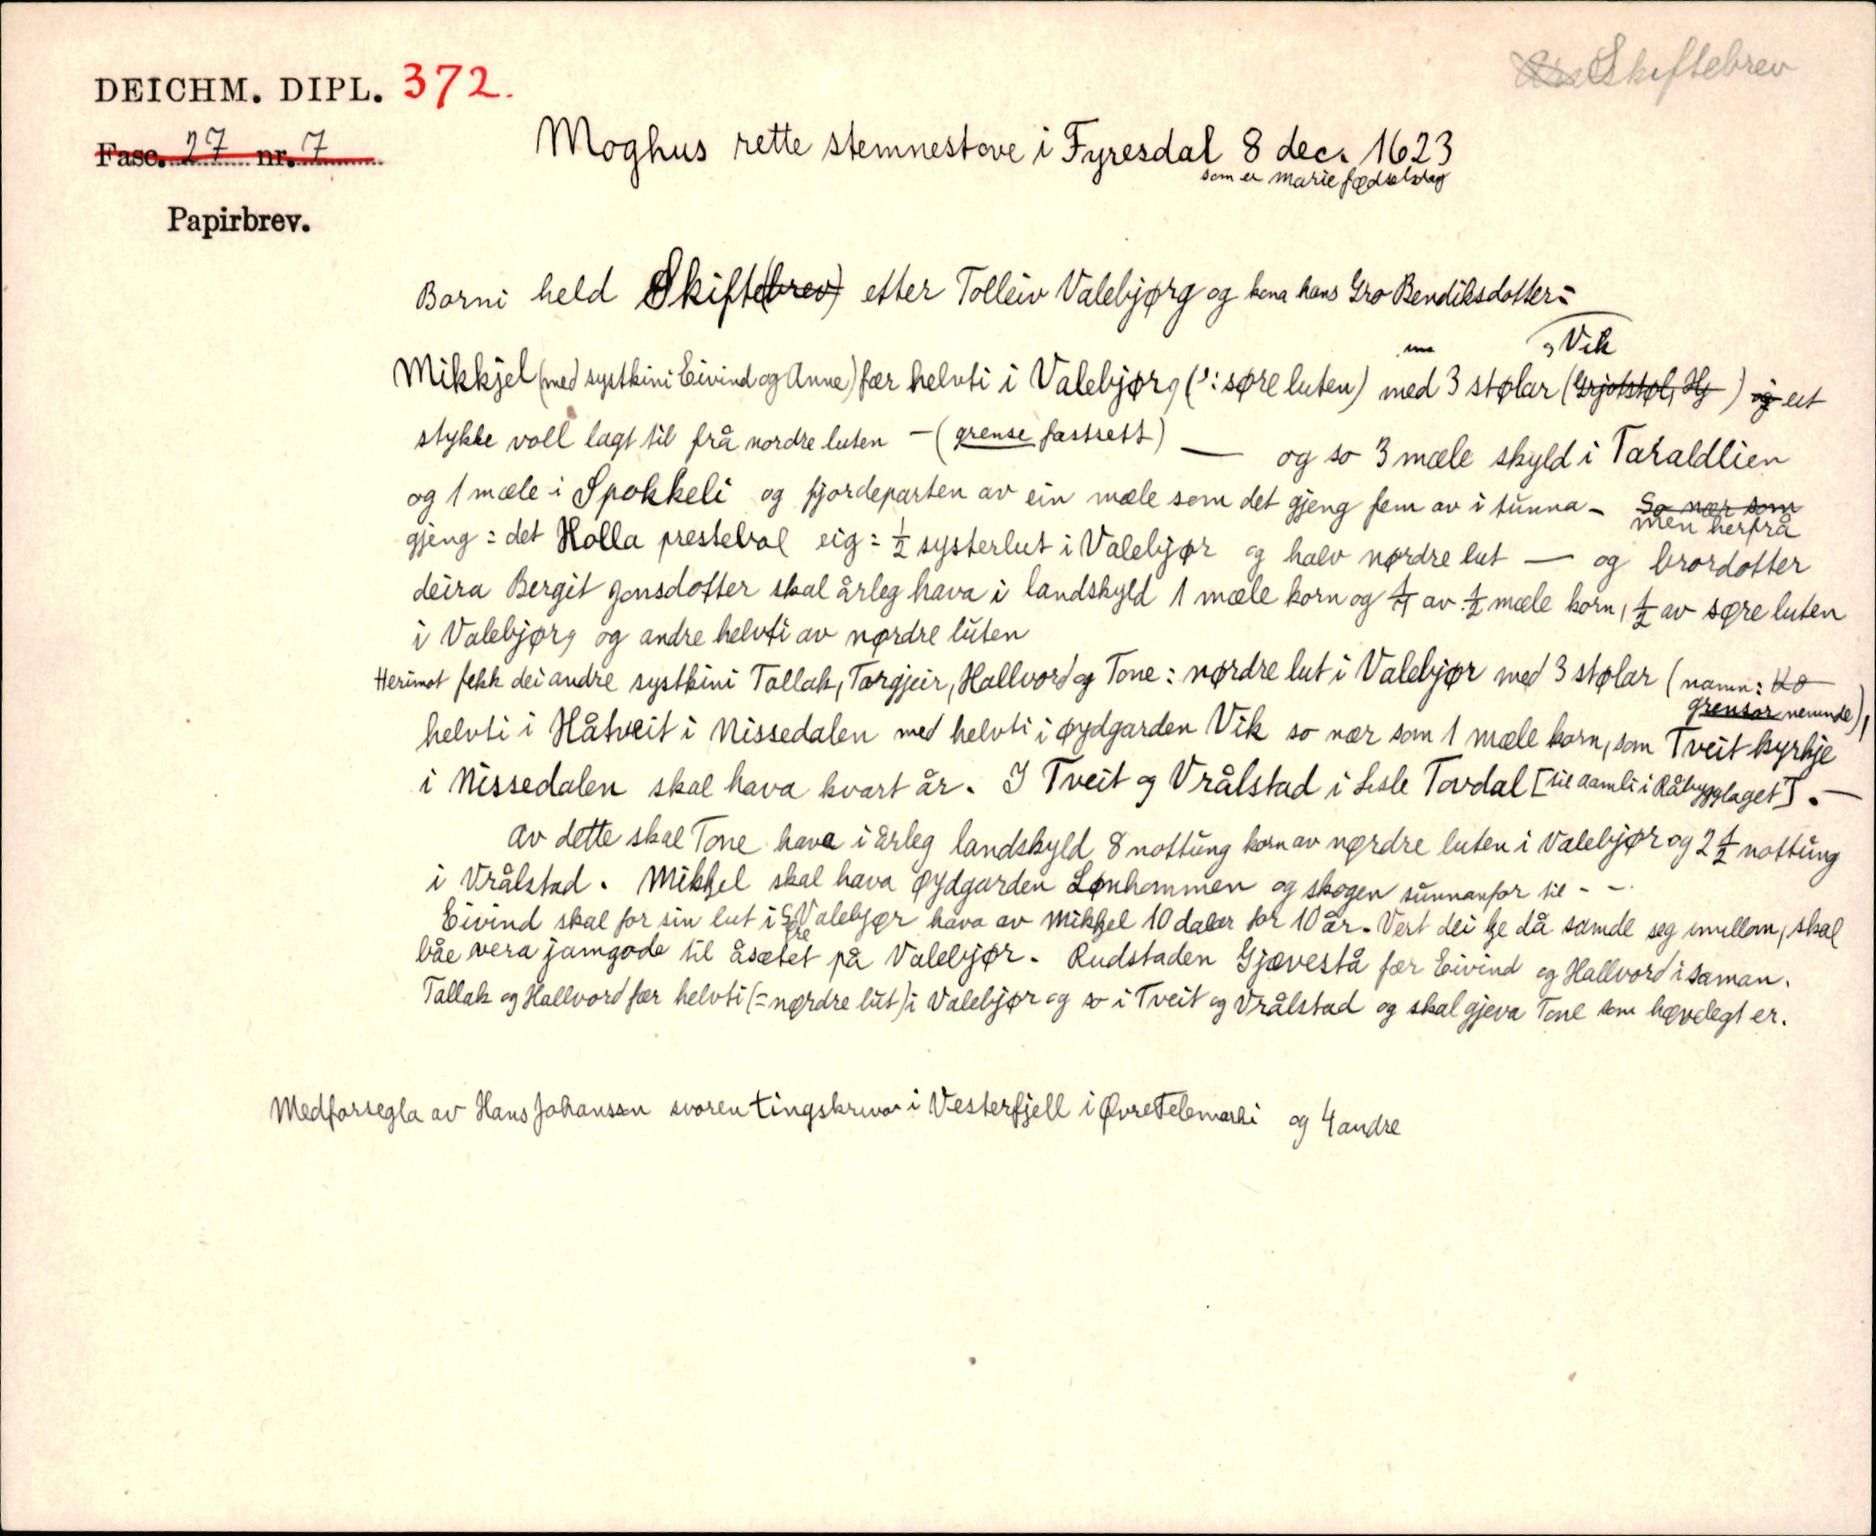 Skiftebrev
DEICHM. DIPL. 372.
Fasc. 27 nr. 7
Papirbrev.
Moghus rette stemnestove i Fyresdal 8 dec. 1623
som er marie fødselsdag
Borni held Skifte(brev) etter Tolleiv Valebjørg og kona hans Gro Bendiksdotter:
Vik
Mikkjel (med systkini Eivind og Anne) fær helvti i Valebjørg (ɔ: søre luten) med 3 stølar (Grjotstøl, Hg ) og eit
stykke voll lagt til frå nordre luten - (grense fastsett) — og so 3 mæle skyld i Taraldlien
og 1 mæle i Spokkeli og fjordeparten av ein mæle som det gjeng fem av i tunna - So nær som
men herfrå
gjeng: det Holla prestebol eig: ½ systerlut i Valebjør og halv nørdre lut — og brordotter
deira Bergit Jonsdotter skal årleg hava i landskyld 1 mæle korn og av ½ mæle korn, ½ av søre luten
i Valebjørg og andre helvti av nørdre luten
Herimot fekk dei andre systkini Tallak, Torgjeir, Hallvord og Tone: nørdre lut i Valebjør med 3 stølar (namn:
grensor nemnde),
helvti i Håtveit i Nissedalen med helvti i øydgarden Vik so nær som 1 mæle korn, som Tveit kyrkje
i Nissedalen skal hava kvart år. I Tveit og Vrålstad i Lisle Tovdal [til Aamli i Råbyggjelaget]. —
av dette skal Tone hava i årleg landskyld 8 nottung korn av nørdre luten i Valebjør og 2 ½ nottung
i Vrålstad. Mikkjel skal hava øydgarden Lønhommen og skogen sunnanfor til - -
Eivind skal for sin lut i Søre Valebjør hava av Mikkjel 10 daler for 10 år. Vert dei kje då samde seg imillom, skal
båe vera jamgode til åsætet på Valebjør. Rudstaden Gjævestå fær Eivind og Hallvord i saman.
Tallak og Hallvord fær helvti (= nørdre lut) i Valebjør og so i Tveit og Vrålstad og skal gjeva Tone som hævelegt er.
Medforsegla av Hans Johansson svoren tingskrivar i Vesterfjell i Øvre Telemarki og 4 andre